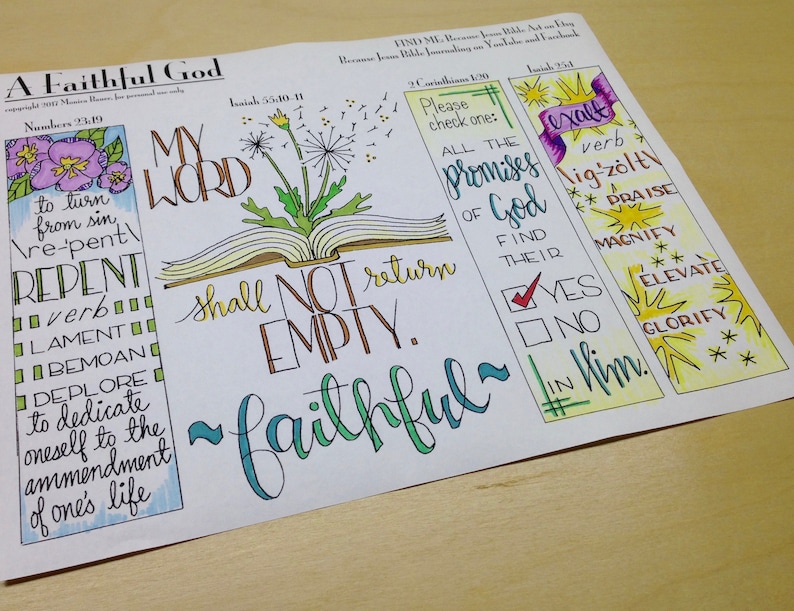 A Faithful God
copyright 2017 Monica Bruce, for personal use only
FIND ME: Because Jesus Bible Art on Etsy
Because Jesus Bible Journaling on YouTube and Facebook
Numbers 23:19
to turn
from sin
\re-'pent\
REPENT
verb
LAMENT
BEMOAN
DEPLORE
to dedicate
oneself to the
ammendment
of one's life
Isaiah 55:10-11
MY
WORD
shall NOT return
EMPTY.
~faithful~
2 Corinthians 1:20
Please
check one:
ALL THE
promises
OF God
FIND
THEIR
YES
NO
IN Him.
Isaiah 25:1
exalt
verb
\ig-'zolt\
PRAISE
MAGNIFY
ELEVATE
GLORIFY